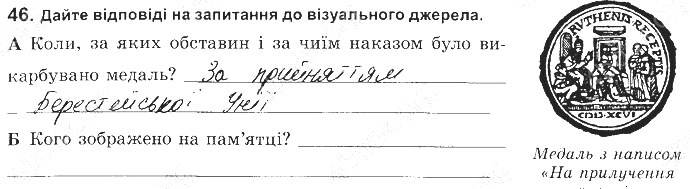 46. Дайте відповіді на запитання до візуального джерела.
А Коли, за яких обставин і за чиїм наказом було ви-
карбувано медаль? За прийняттям
Берестейської Унії
Б Кого зображено на пам'ятці?
RVTHENIS RECEPTIS
Медаль з написом
«На прилучення